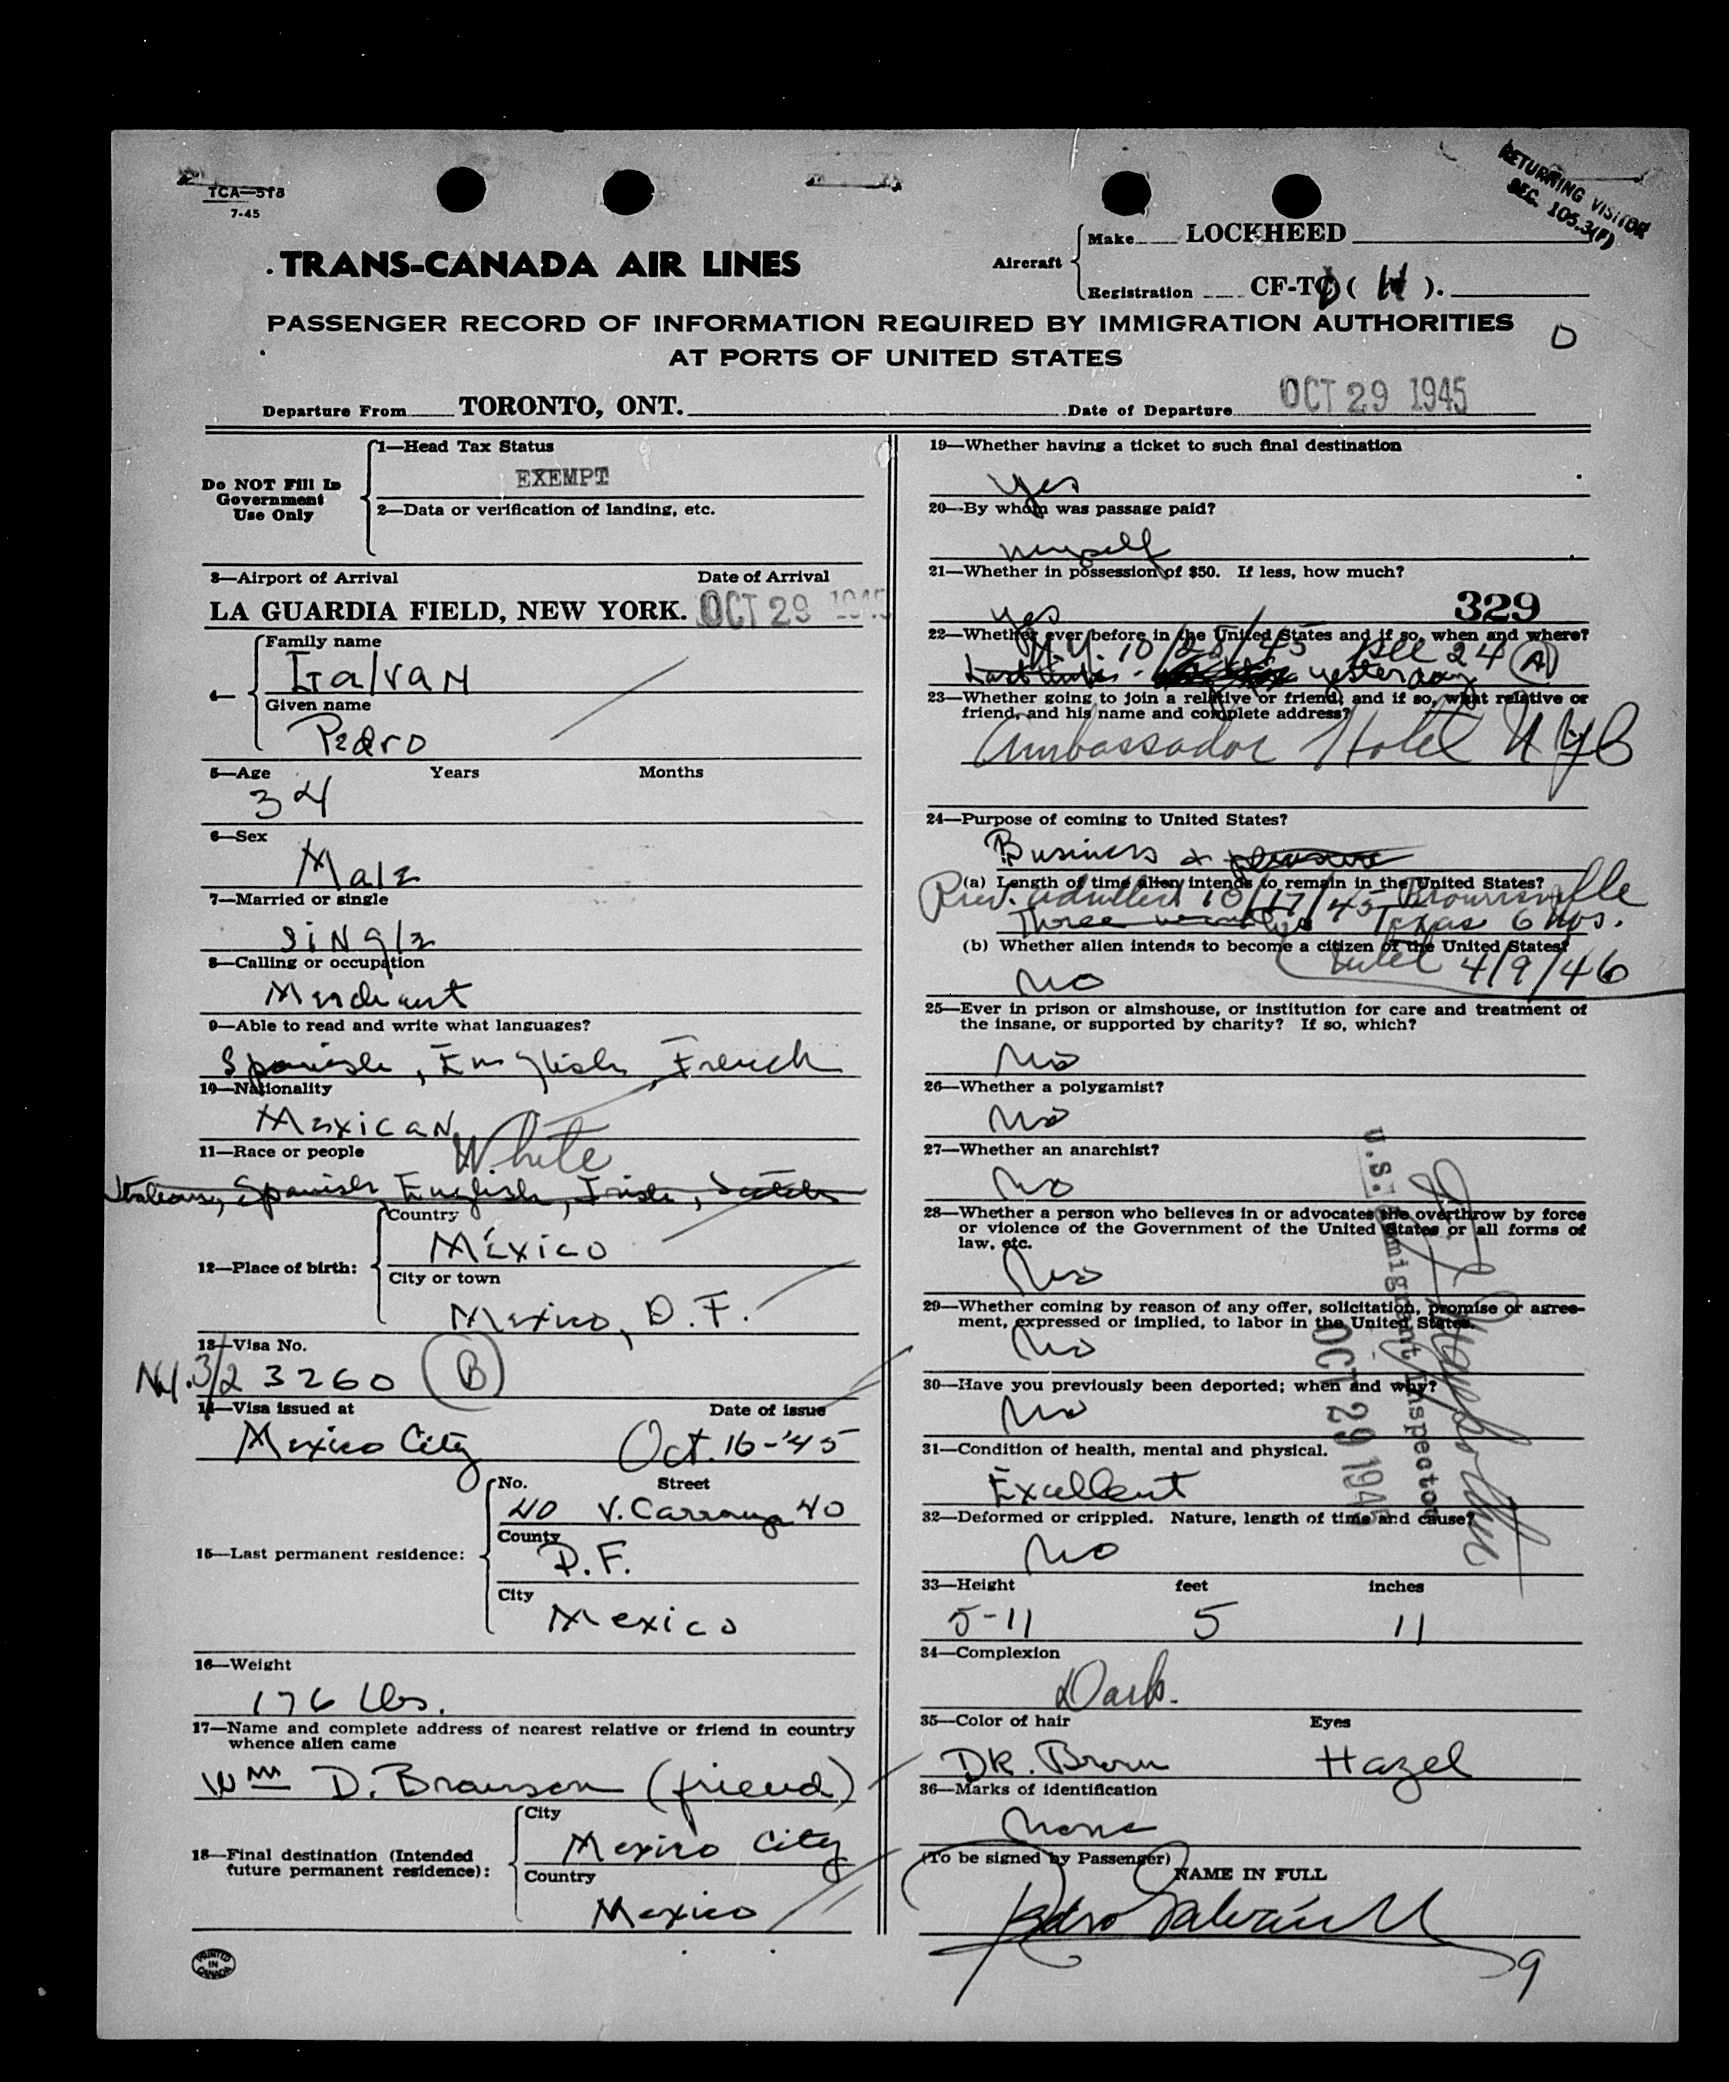 TCA—518
7-45
RETURNING VISITOR
SEC. 105.3(F)
TRANS-CANADA AIR LINES
Aircraft
Make LOCKHEED
Registration CF-TC ( H ).
PASSENGER RECORD OF INFORMATION REQUIRED BY IMMIGRATION AUTHORITIES
AT PORTS OF UNITED STATES
Departure From TORONTO, ONT. Date of Departure OCT 29 1945
Do NOT Fill In
Government
Use Only
1—Head Tax Status
EXEMPT
2—Data or verification of landing, etc.
3—Airport of Arrival Date of Arrival
LA GUARDIA FIELD, NEW YORK. OCT 29 1945
4—
Family name
Galvan
Given name
Pedro
5—Age Years Months
34
6—Sex
Male
7—Married or single
Single
8—Calling or occupation
Merchant
9—Able to read and write what languages?
Spanish, English, French
10—Nationality
Mexican
11—Race or people
White
Italian, Spanish, English, Irish, Scotch
12—Place of birth:
Country
México
City or town
Mexico, D. F.
13—Visa No.
3/2 3260 (B)
14—Visa issued at Date of issue
Mexico City Oct. 16-'45
15—Last permanent residence:
No. Street
40 V. Carranza 40
County
D.F.
City
Mexico
16—Weight
176 lbs.
17—Name and complete address of nearest relative or friend in country
whence alien came
Wm D. Branson (friend)
18—Final destination (Intended
future permanent residence):
City
Mexico City
Country
Mexico
PRINTED
IN
CANADA
19—Whether having a ticket to such final destination
Yes
20—By whom was passage paid?
Myself
21—Whether in possession of $50. If less, how much?
Yes 329
22—Whether ever before in the United States and if so, when and where?
N.Y. 10/28/45 24 (A)
yesterday
23—Whether going to join a relative or friend, and if so, what relative or
friend, and his name and complete address?
Ambassador Hotel NYC
24—Purpose of coming to United States?
Business & pleasure
(a) Length of time alien intends to remain in the United States?
Prev. admitted 10/17/45 Brownsville
Three Texas 6 mos.
(b) Whether alien intends to become a citizen of the United States?
until 4/9/46
No
25—Ever in prison or almshouse, or institution for care and treatment of
the insane, or supported by charity? If so, which?
No
26—Whether a polygamist?
No
27—Whether an anarchist?
No
28—Whether a person who believes in or advocates the overthrow by force
or violence of the Government of the United States or all forms of
law, etc.
No
29—Whether coming by reason of any offer, solicitation, promise or agree-
ment, expressed or implied, to labor in the United States.
No
30—Have you previously been deported; when and why?
No
31—Condition of health, mental and physical.
Excellent
32—Deformed or crippled. Nature, length of time and cause?
No
U.S. Immigrant Inspector
OCT 29 1945
33—Height feet inches
5-11 5 11
34—Complexion
Dark.
35—Color of hair Eyes
DK. Brown Hazel
36—Marks of identification
None
(To be signed by Passenger)
NAME IN FULL
Pedro Galván
9